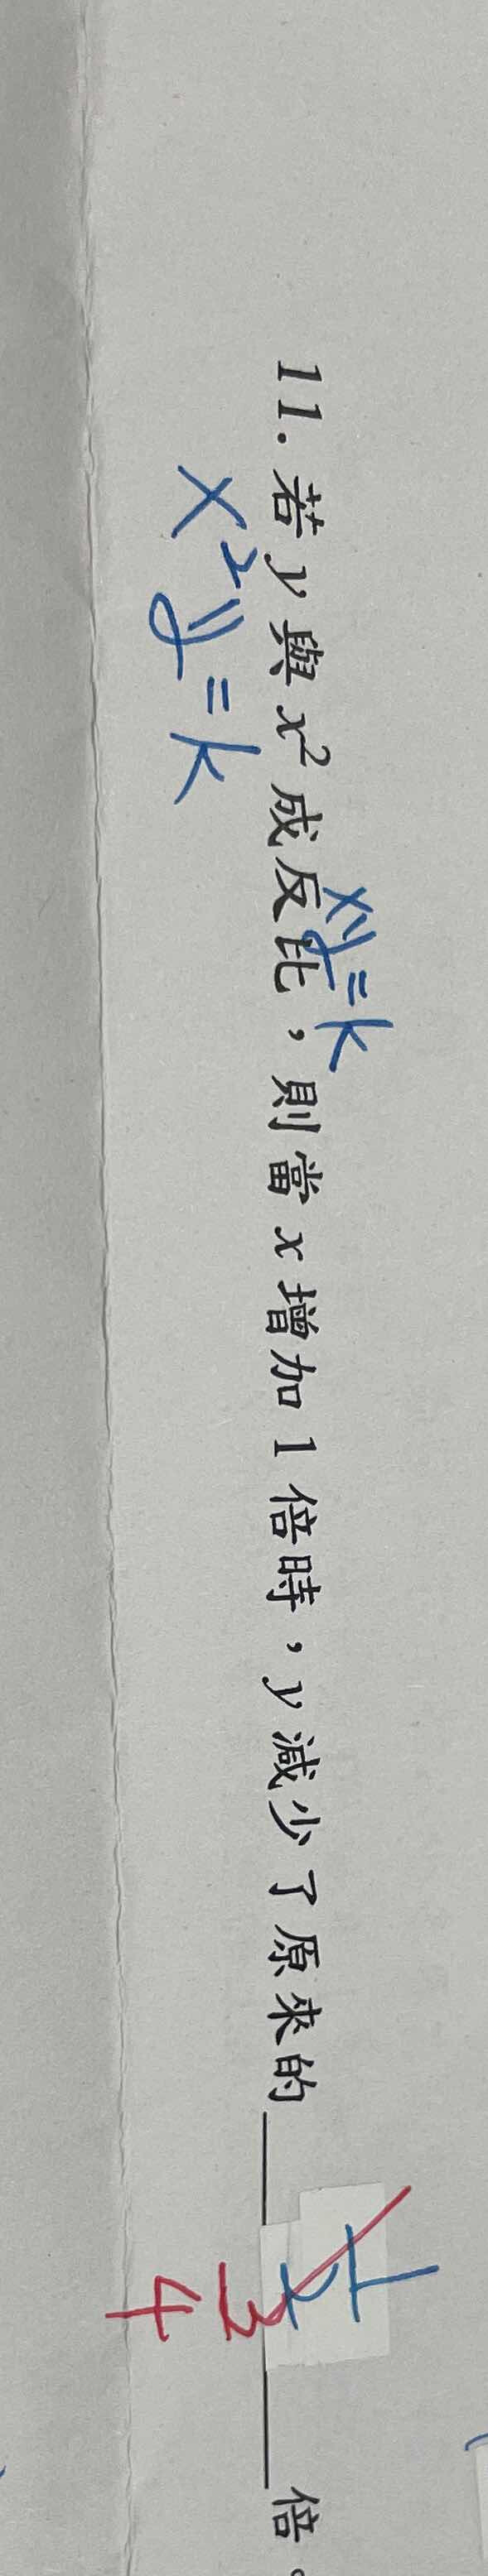 xy=k
11. 若 y 與 x² 成反比，則當 x 增加 1 倍時，y 減少了原來的 1/2 倍。
x²y=k
3/4